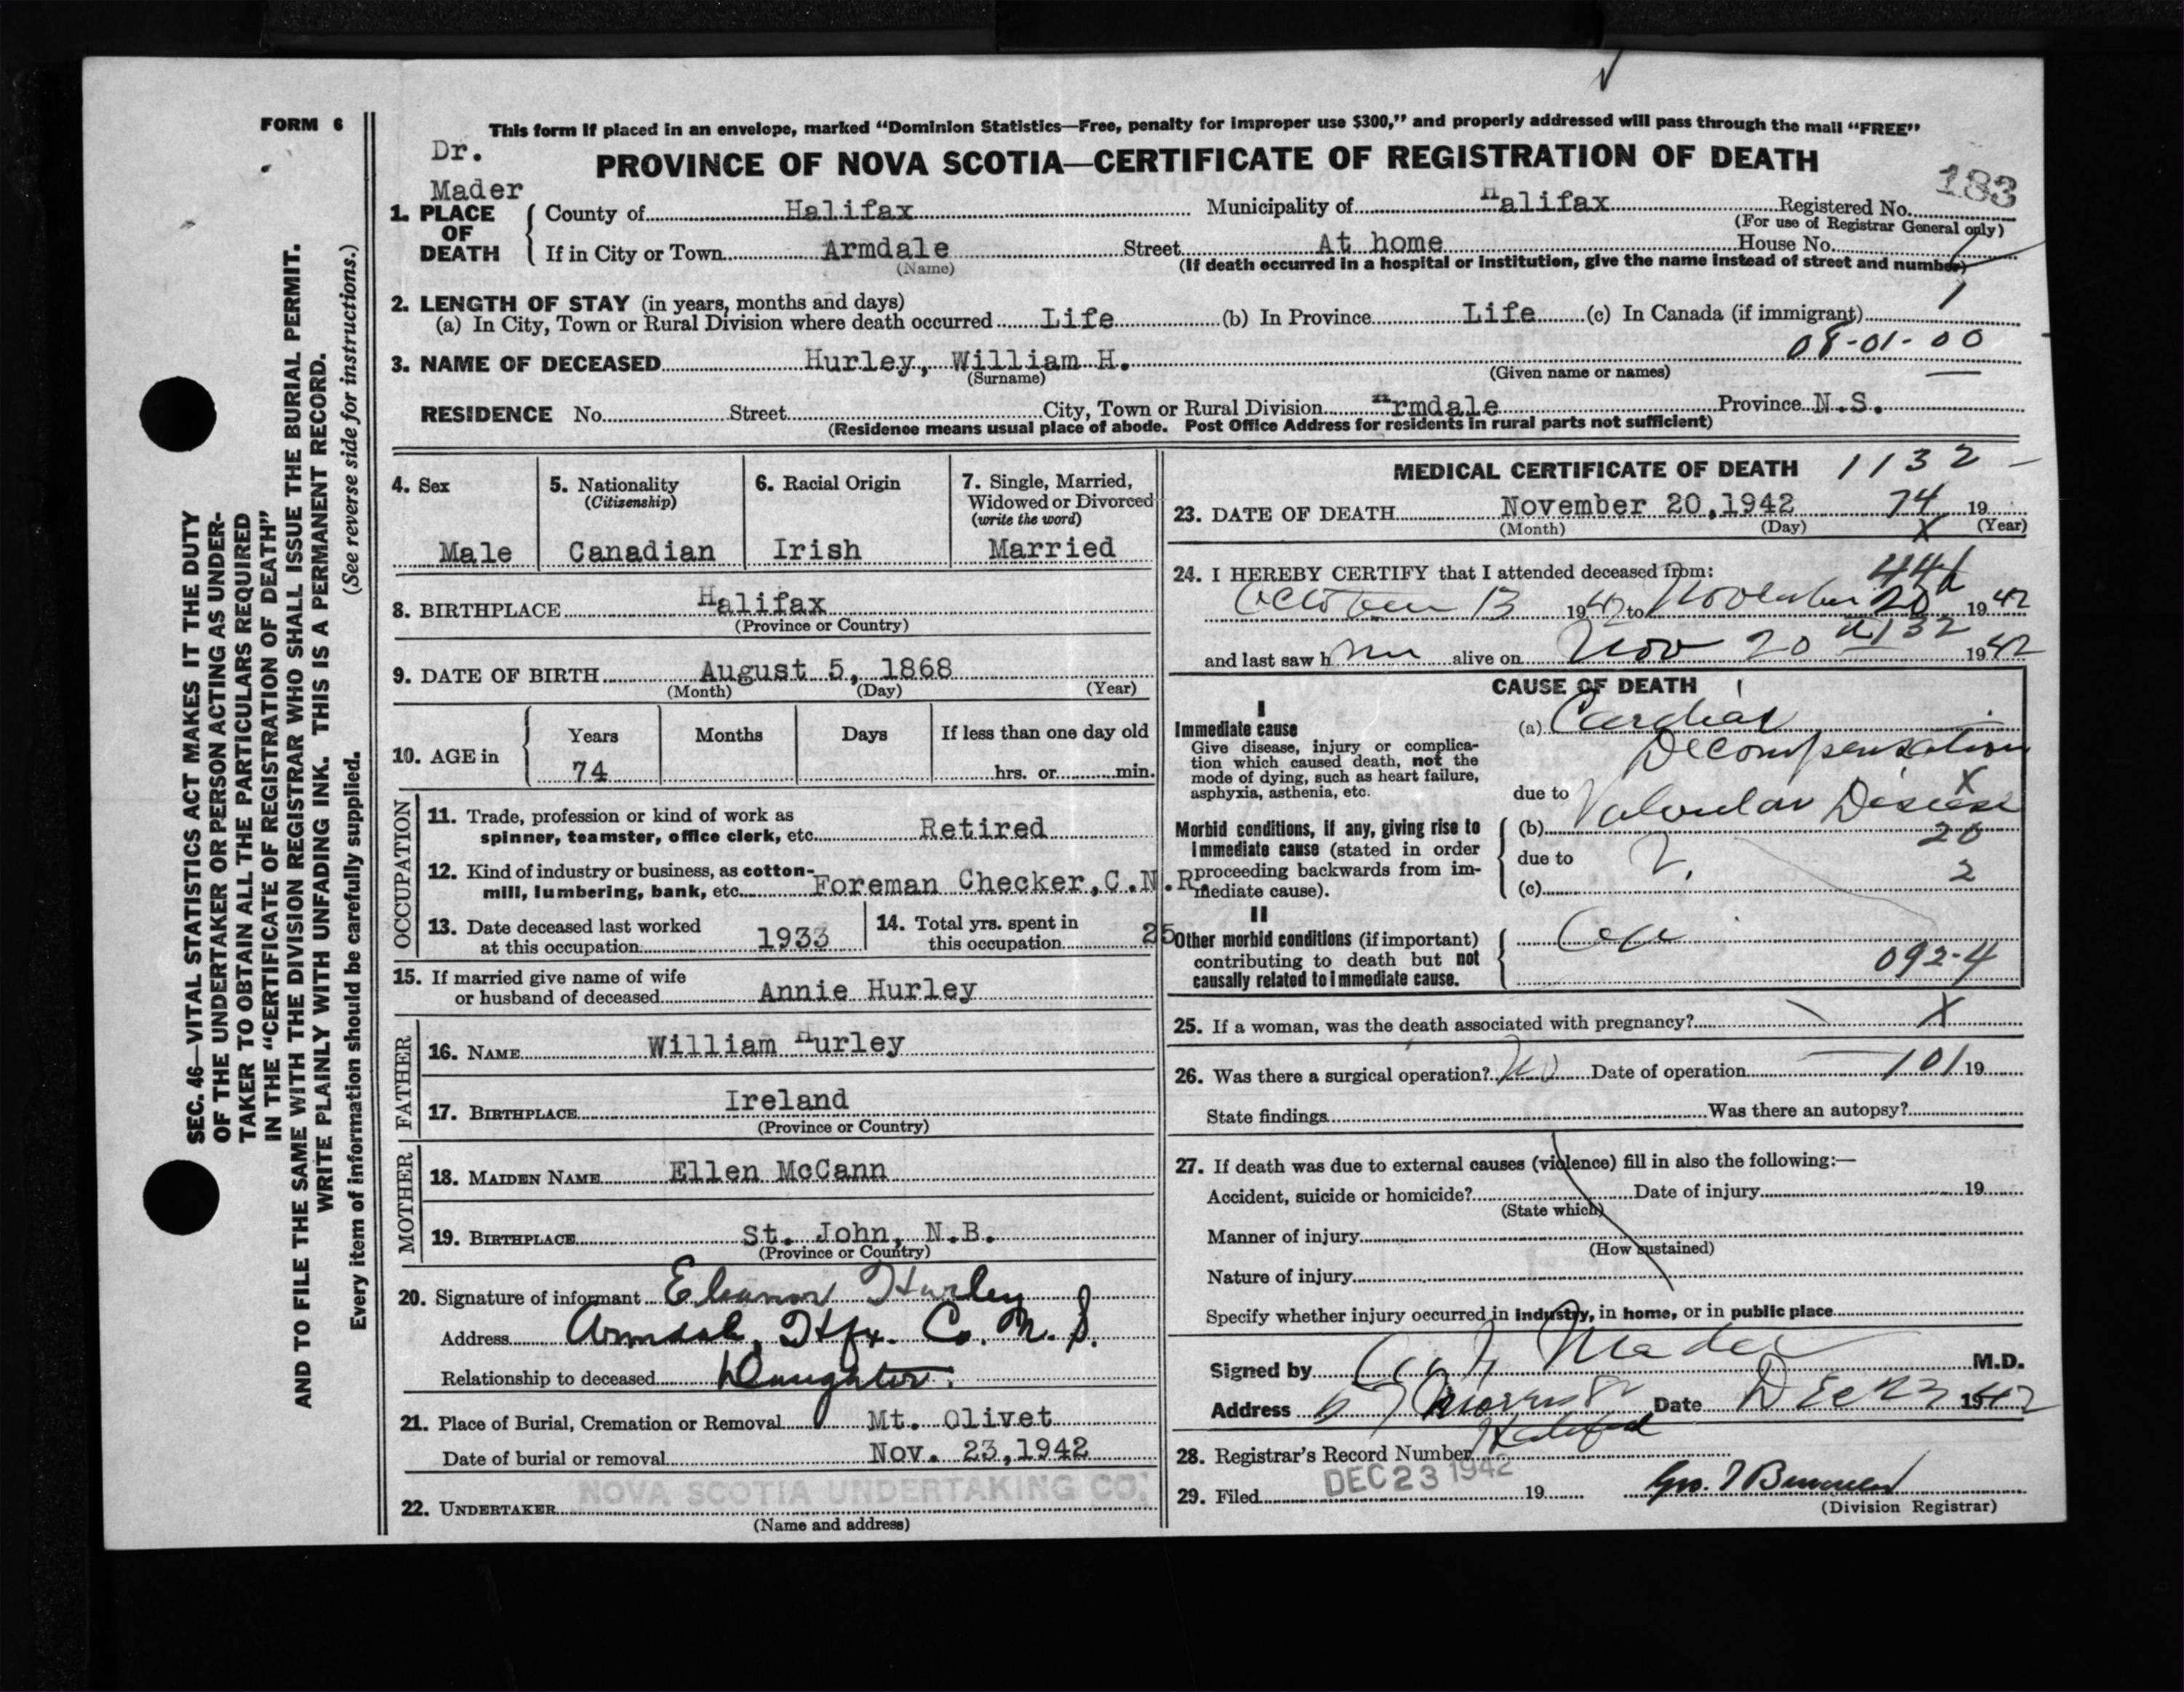 FORM 6
This form if placed in an envelope, marked “Dominion Statistics—Free, penalty for improper use $300,” and properly addressed will pass through the mail “FREE”
Dr.
Mader
PROVINCE OF NOVA SCOTIA—CERTIFICATE OF REGISTRATION OF DEATH
183
1. PLACE OF DEATH
County of Halifax Municipality of Halifax Registered No.
(For use of Registrar General only)
If in City or Town Armdale Street At home House No.
(Name) (If death occurred in a hospital or institution, give the name instead of street and number)
2. LENGTH OF STAY (in years, months and days)
(a) In City, Town or Rural Division where death occurred Life (b) In Province Life (c) In Canada (if immigrant) 1
08-01-00
3. NAME OF DECEASED Hurley, William H.
(Surname) (Given name or names)
RESIDENCE No. Street City, Town or Rural Division Armdale Province N.S.
(Residence means usual place of abode. Post Office Address for residents in rural parts not sufficient)
4. Sex
Male
5. Nationality
(Citizenship)
Canadian
6. Racial Origin
Irish
7. Single, Married,
Widowed or Divorced
(write the word)
Married
8. BIRTHPLACE Halifax
(Province or Country)
9. DATE OF BIRTH August 5, 1868
(Month) (Day) (Year)
10. AGE in
Years Months Days If less than one day old
74 hrs. or min.
OCCUPATION
11. Trade, profession or kind of work as
spinner, teamster, office clerk, etc. Retired
12. Kind of industry or business, as cotton-
mill, lumbering, bank, etc. Foreman Checker, C.N.R.
13. Date deceased last worked
at this occupation 1933
14. Total yrs. spent in
this occupation 25
15. If married give name of wife
or husband of deceased Annie Hurley
FATHER
16. NAME William Hurley
17. BIRTHPLACE Ireland
(Province or Country)
MOTHER
18. MAIDEN NAME Ellen McCann
19. BIRTHPLACE St. John, N.B.
(Province or Country)
20. Signature of informant Eleanor Hurley
Address Armdale, Hfx. Co. N.S.
Relationship to deceased Daughter.
21. Place of Burial, Cremation or Removal Mt. Olivet
Date of burial or removal Nov. 23, 1942
22. UNDERTAKER NOVA SCOTIA UNDERTAKING CO.
(Name and address)
MEDICAL CERTIFICATE OF DEATH 1132
23. DATE OF DEATH November 20, 1942 74 19
(Month) (Day) X (Year)
24. I HEREBY CERTIFY that I attended deceased from:
October 13 1942 to November 20th 1942
1132
and last saw him alive on Nov 20 1942
CAUSE OF DEATH
I
Immediate cause
Give disease, injury or complica-
tion which caused death, not the
mode of dying, such as heart failure,
asphyxia, asthenia, etc.
(a) Cardiac
Decompensation
X
due to Valvular Disease
Morbid conditions, if any, giving rise to
immediate cause (stated in order
proceeding backwards from im-
mediate cause).
(b) 20
due to ?
(c) 2
II
Other morbid conditions (if important)
contributing to death but not
causally related to immediate cause.
Age
092-4
25. If a woman, was the death associated with pregnancy? X
26. Was there a surgical operation? No Date of operation 101 19
State findings Was there an autopsy?
27. If death was due to external causes (violence) fill in also the following:—
Accident, suicide or homicide? Date of injury 19
(State which)
Manner of injury
(How sustained)
Nature of injury
Specify whether injury occurred in industry, in home, or in public place
Signed by Mader M.D.
Address Morris St Date Dec 23 1942
Halifax
28. Registrar's Record Number
29. Filed DEC 23 1942 19
(Division Registrar)
SEC. 46—VITAL STATISTICS ACT MAKES IT THE DUTY
OF THE UNDERTAKER OR PERSON ACTING AS UNDER-
TAKER TO OBTAIN ALL THE PARTICULARS REQUIRED
IN THE “CERTIFICATE OF REGISTRATION OF DEATH”
AND TO FILE THE SAME WITH THE DIVISION REGISTRAR WHO SHALL ISSUE THE BURIAL PERMIT.
WRITE PLAINLY WITH UNFADING INK. THIS IS A PERMANENT RECORD.
(See reverse side for instructions.)
Every item of information should be carefully supplied.